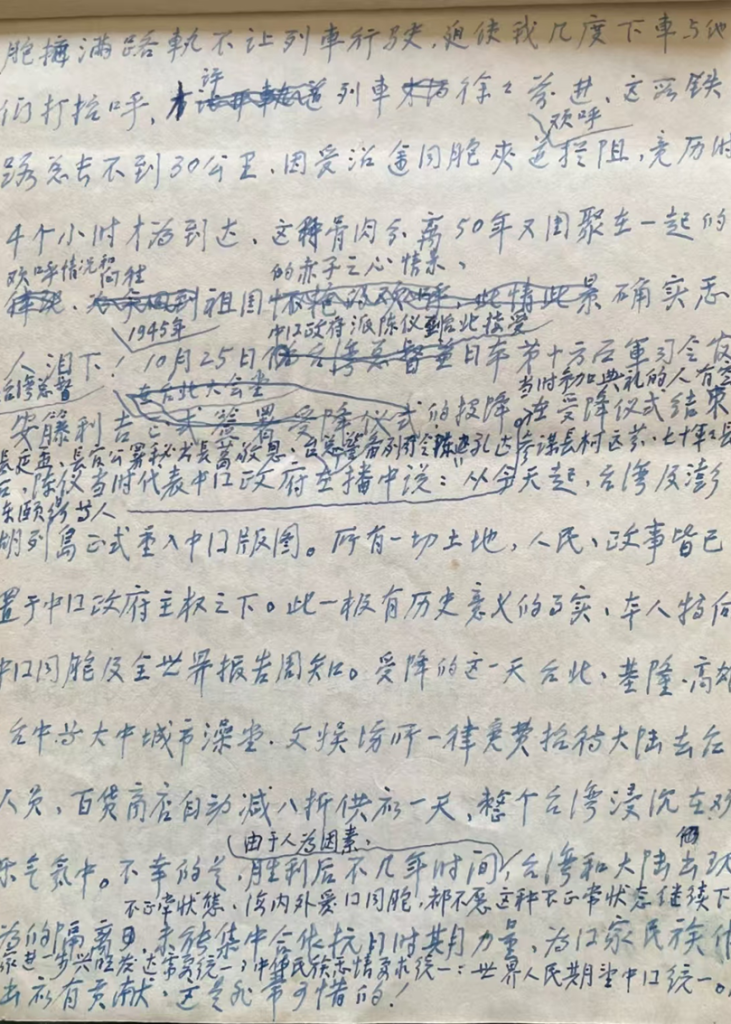 胞拥满路轨不让列車行驶,迫使我几度下車与他
们打招呼,才让列車徐徐前进,这段铁
欢呼
路总长不到30公里,因受沿途同胞夾道拦阻,竟历时
4个小时才到达,这种骨肉分离50年又团聚在一起的
欢呼情况和向往祖国的赤子之心情景,此情此景确实惹
1945年
中口政府派陈仪到台北接受
人泪下!10月25日日本第十方面軍司令官
台湾总督
在台北大会堂
当时参加典礼的人有
安藤利吉正式的投降,在受降仪式结束
長官公署秘书長葛敬恩
后,陈仪当时代表中口政府在播中说:“从今天起,台湾及澎
等人
湖列島正式重入中口版图。所有一切土地,人民、政事皆已
置于中口政府主权之下。此一极有历史意义的事实,本人特向
中口同胞及全世界报告周知。受降的这一天台北、基隆、高雄
台中等大中城市澡堂、文娱场所一律免费招待大陆去台
人员,百货商店自动减八折供应一天,整个台湾浸沉在欢
由于人为因素,
乐气氛中。不幸的是,胜利后不几年时间,台湾和大陆出现
不正常状態,海内外爱口同胞,都不愿这种不正常状态继续下
的隔离,未能集中合作抗日时期力量,为口家民族作
进一步兴旺发达需要统一;中华民族感情要求统一;世界人民期望中口统一。
出应有贡献,这是非常可惜的!